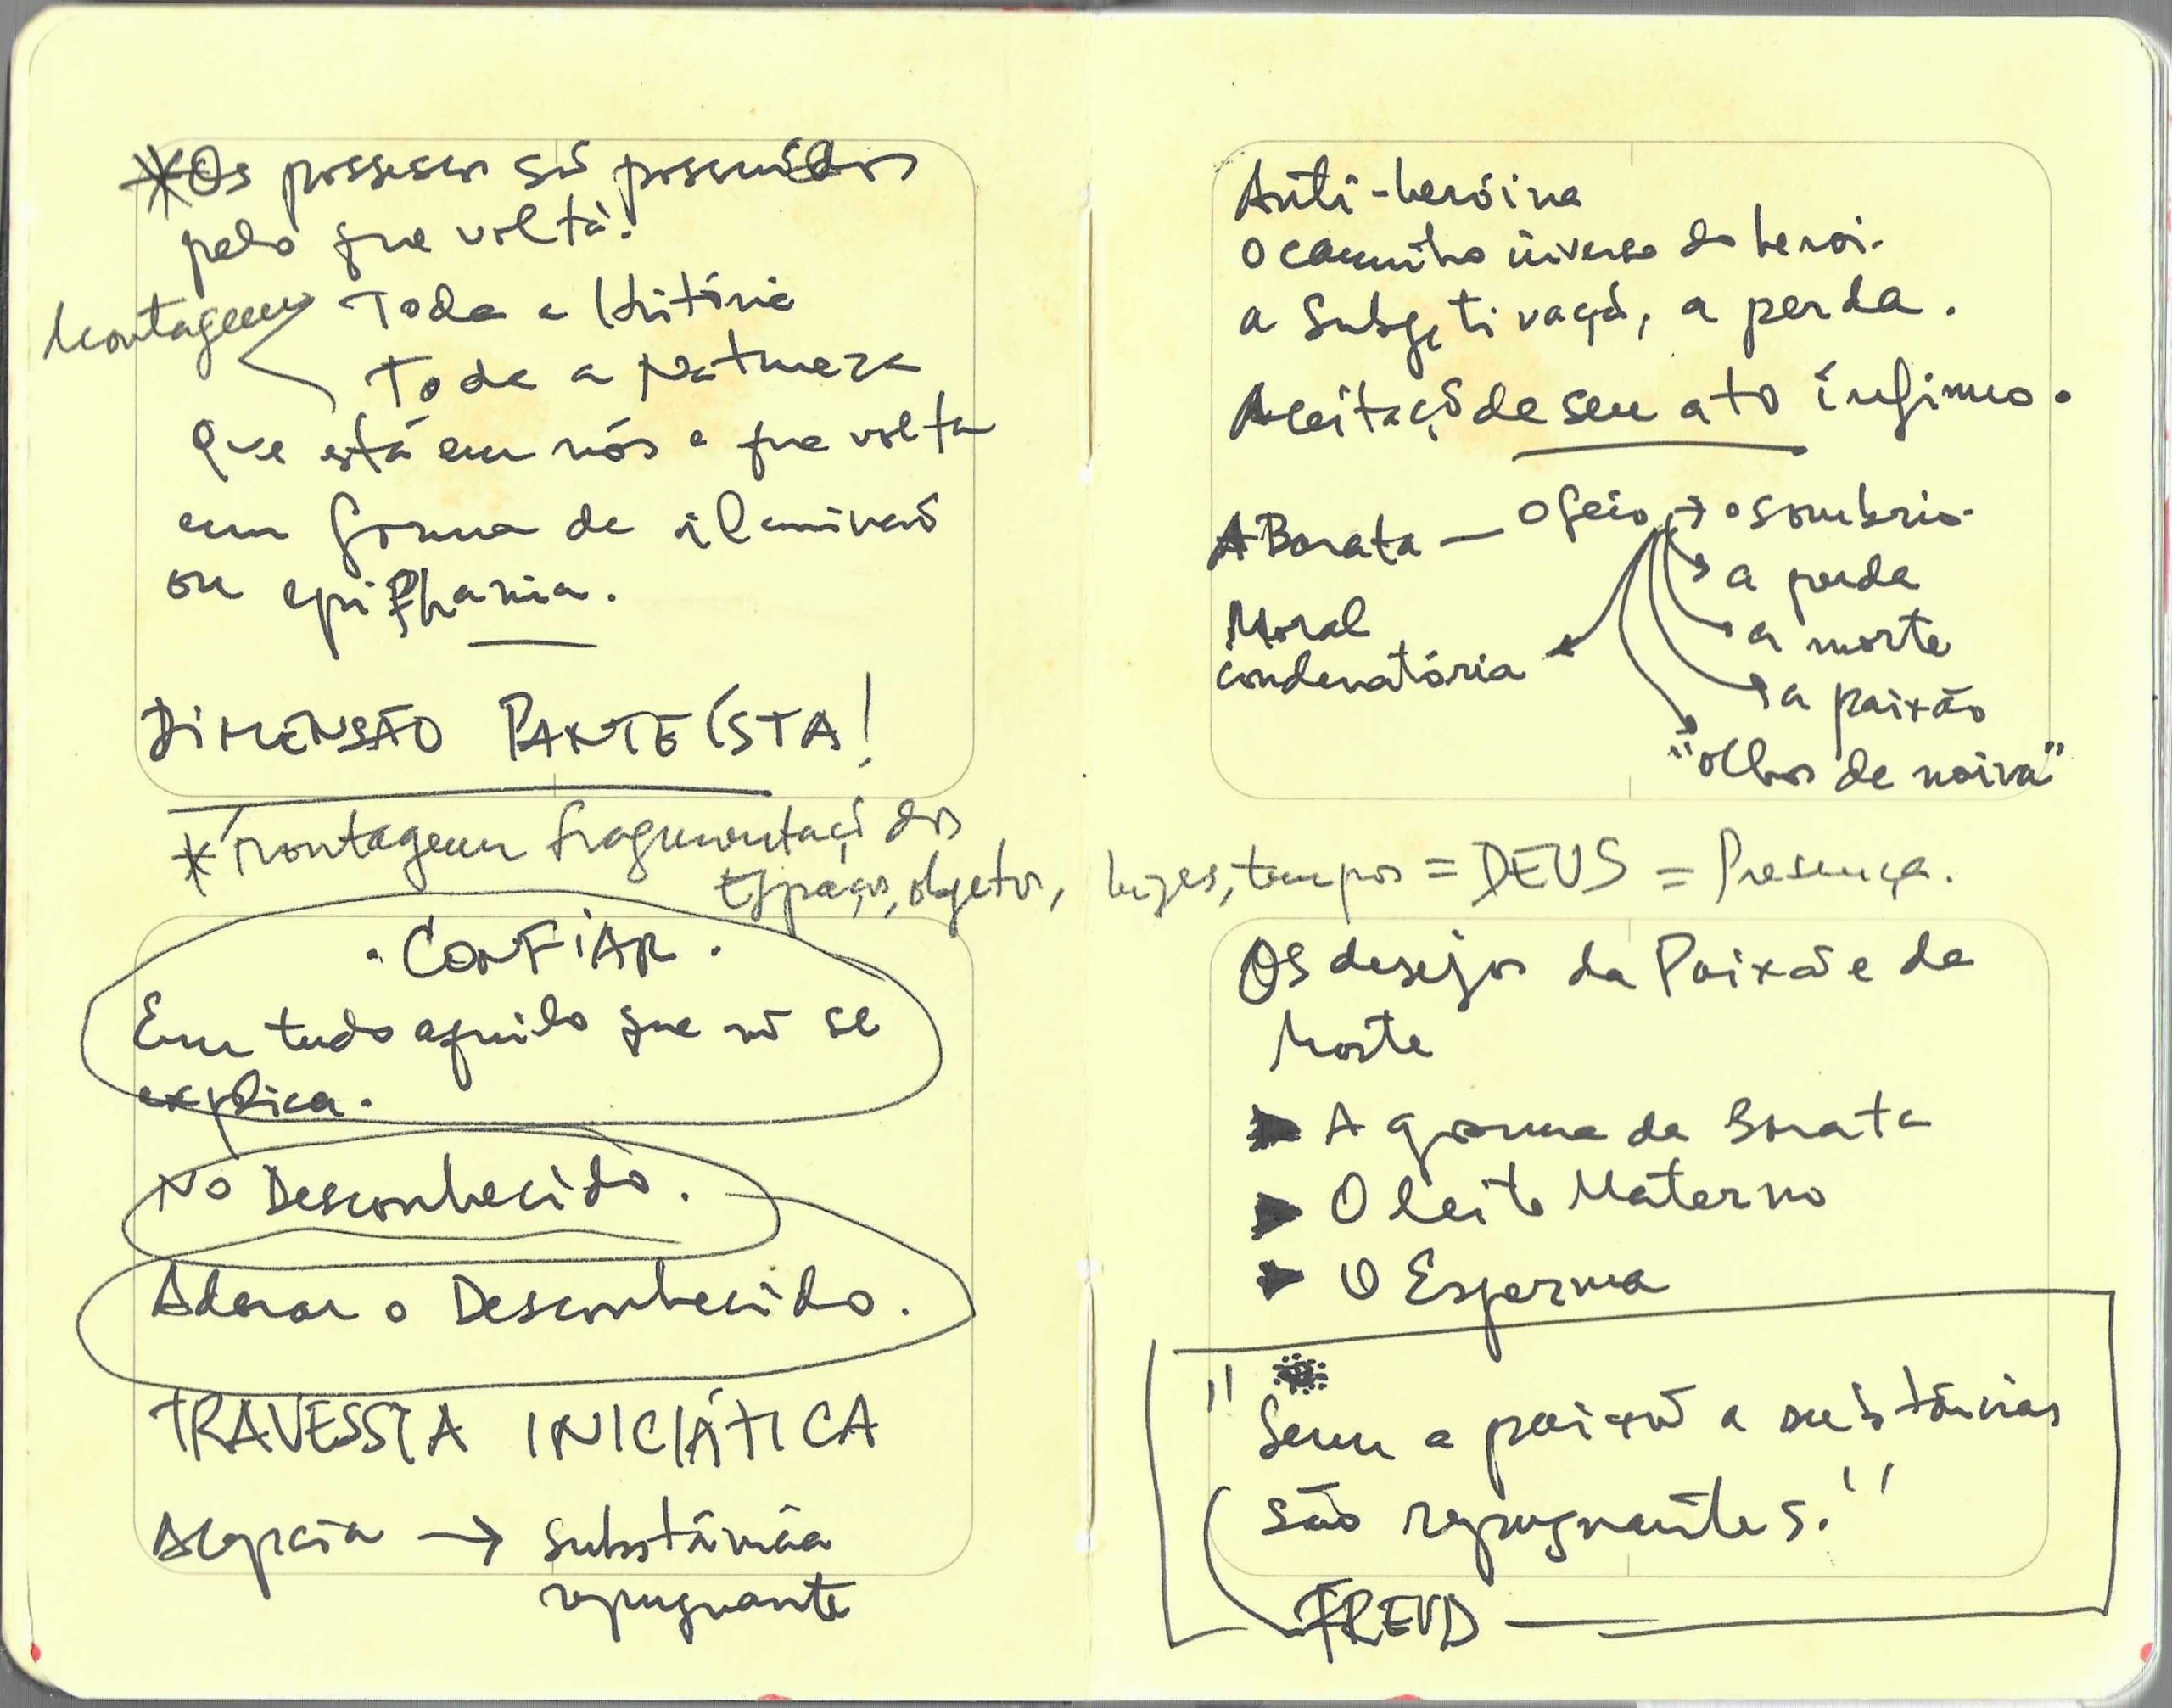 *Os possessos são possuídos
pelo que volta!
Montagem
Toda a História
Toda a Natureza
Que está em nós e que volta
em forma de iluminação
ou epiphania.
DIMENSÃO PANTEÍSTA!
*Montagem fragmentaçã dos
Espaços, objetos, luzes, tempos = DEUS = Presença.
• CONFIAR •
Em tudo aquilo que não se
explica.
No Desconhecido.
Adorar o Desconhecido.
TRAVESSIA INICIÁTICA
Alegria → substância
repugnante
Anti-heróina
O caminho inverso do heroi.
a Subjetivação, a perda.
Aceitaçã de seu ato ínfimo.
A Barata — o feio → o sombrio
a perda
Moral
condenatória
a morte
a paixão
"olhos de noiva"
Os desejos da Paixão e da
Morte
► A gosma da Barata
► O leite Materno
► O Esperma
"Sem a paixão a substâncias
são repugnantes."
FREUD